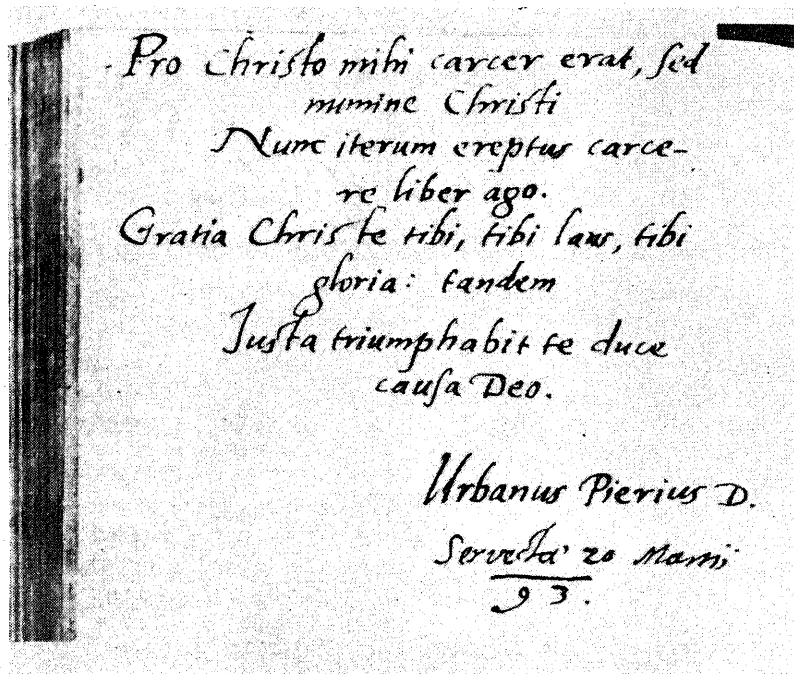 Pro Christo mihi carcer erat, sed
numine Christi
Nunc iterum ereptus carce-
re liber ago.
Gratia Christe tibi, tibi laus, tibi
gloria: tandem
Justa triumphabit te duce
causa Deo.
Urbanus Pierius D.
Servestæ 20 Martij
93.